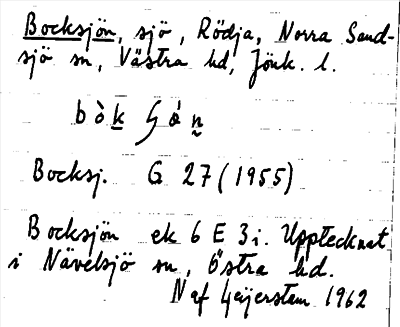 Bocksjön, sjö, Rödja, Norra Sand-
sjö sn, Västra hd, Jönk. l.
Bocksj. G 27 (1955)
Bocksjön ek 6 E 3i. Upptecknat
i Nävelsjö sn, Östra hd.
N af Geijerstam 1962